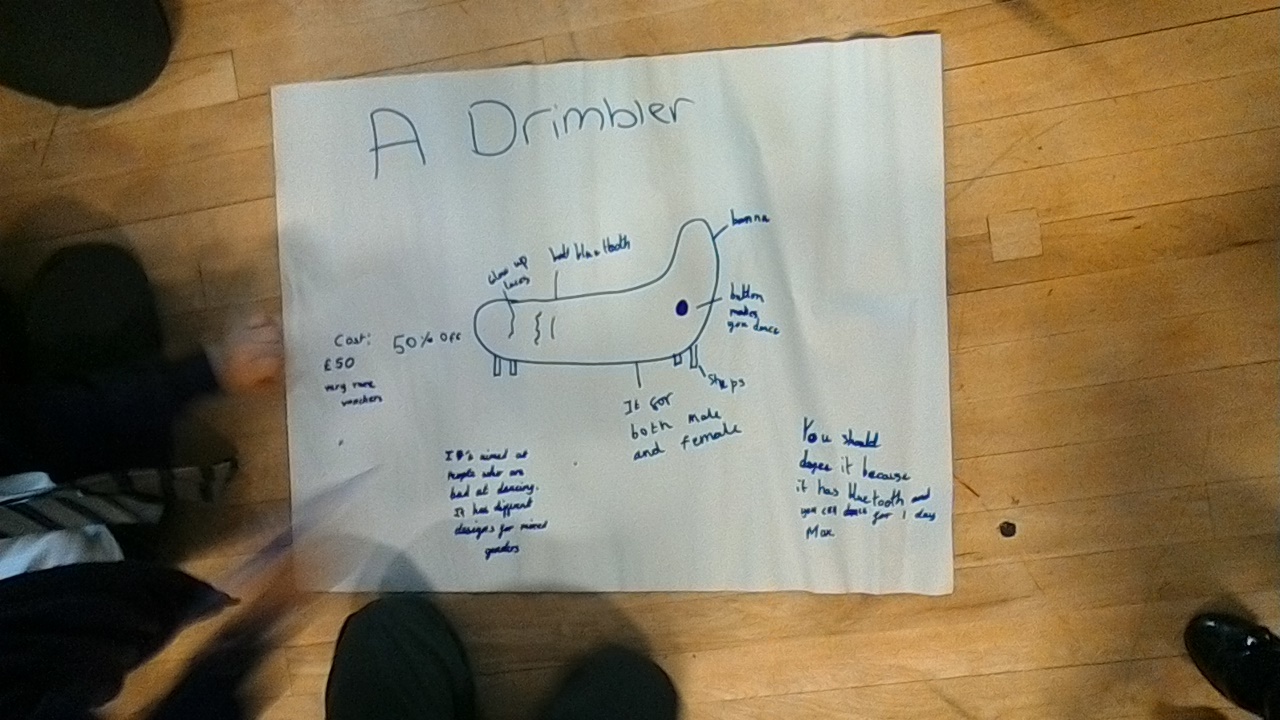 A Drimbler
banna
glow up
laces
bluetooth
button
makes
you dance
Cost: 50% OFF
£50
very rare
vouchers
straps
It for
both male
and female
You should
it because
it has bluetooth and
you can dance for 1 day
Max
It's aimed at
People who are
bad at dancing.
It has different
designs for mixed
genders